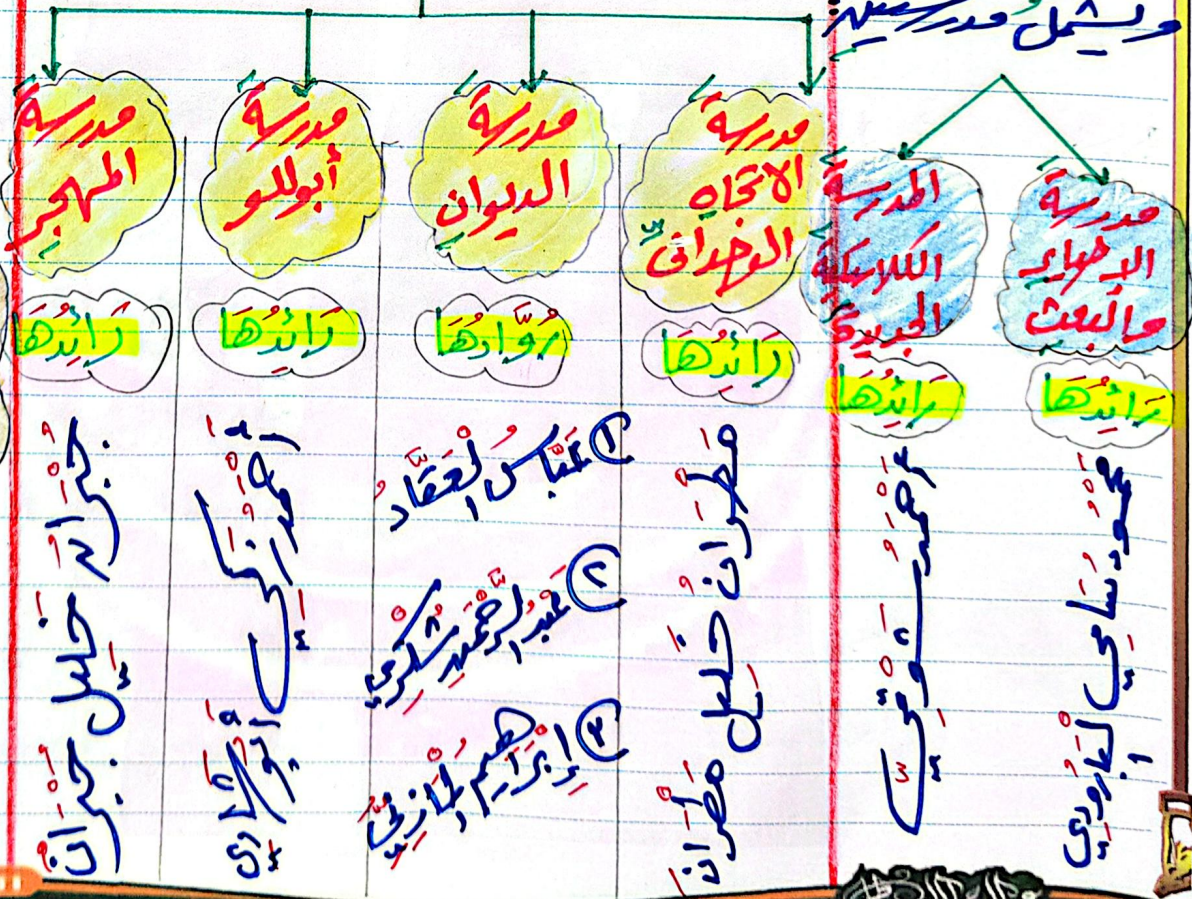 ويشمل مدرستين
مدرسة
الإحياء
والبعث
رَائِدُهَا
محمود سامي البارودي
المدرسة
الكلاسيكية
الجديدة
رَائِدُهَا
أحمد شوقي
مدرسة
الاتجاه
الوجداني
رَائِدُهَا
مطران خليل مطران
مدرسة
الديوان
رُوَّادُهَا
١ عَبَّاس العَقَّاد
٢ عَبْدُ الرَّحْمَن شُكْرِي
٣ إِبْرَاهِيم المَازِنِيّ
مدرسة
أبوللو
رَائِدُهَا
أحمد زكي أبو شادي
مدرسة
المهجر
رَائِدُهَا
جبران خليل جبران